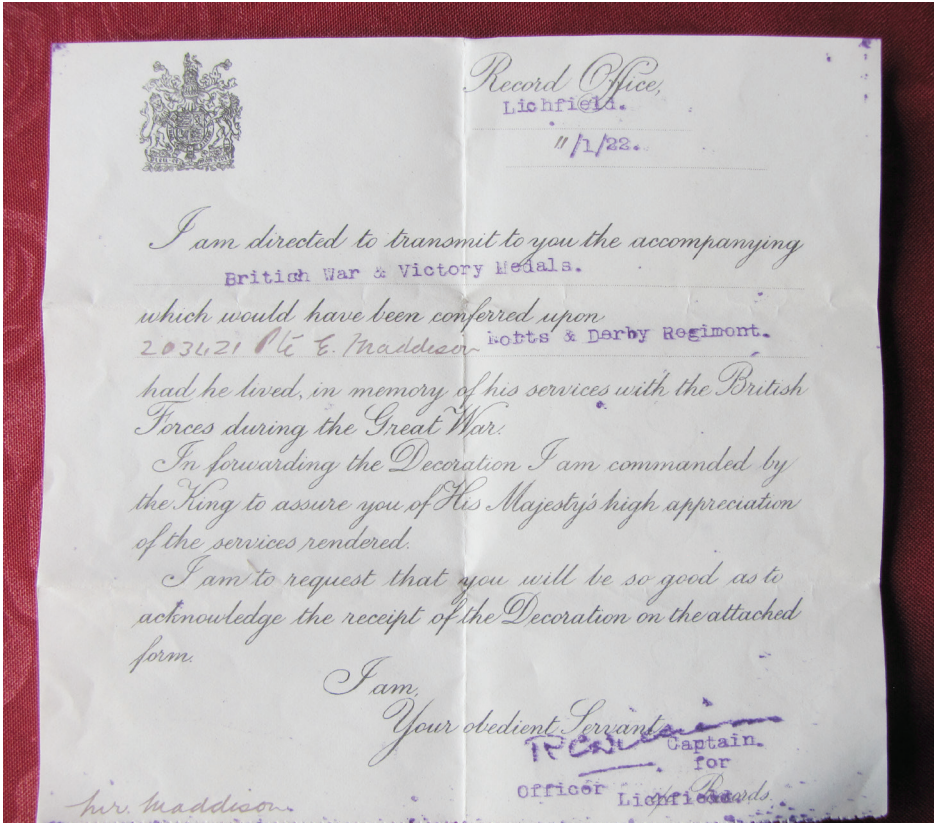 Record Office,
Lichfield.
11/1/22.
I am directed to transmit to you the accompanying
British War & Victory Medals.
which would have been conferred upon
203421 Pte E. Maddison Notts & Derby Regiment.
had he lived, in memory of his services with the British
Forces during the Great War.
In forwarding the Decoration I am commanded by
the King to assure you of His Majesty's high appreciation
of the services rendered.
I am to request that you will be so good as to
acknowledge the receipt of the Decoration on the attached
form.
I am,
Your obedient Servant,
Captain.
for
Officer i/c Records.
Lichfield
Mr. Maddison